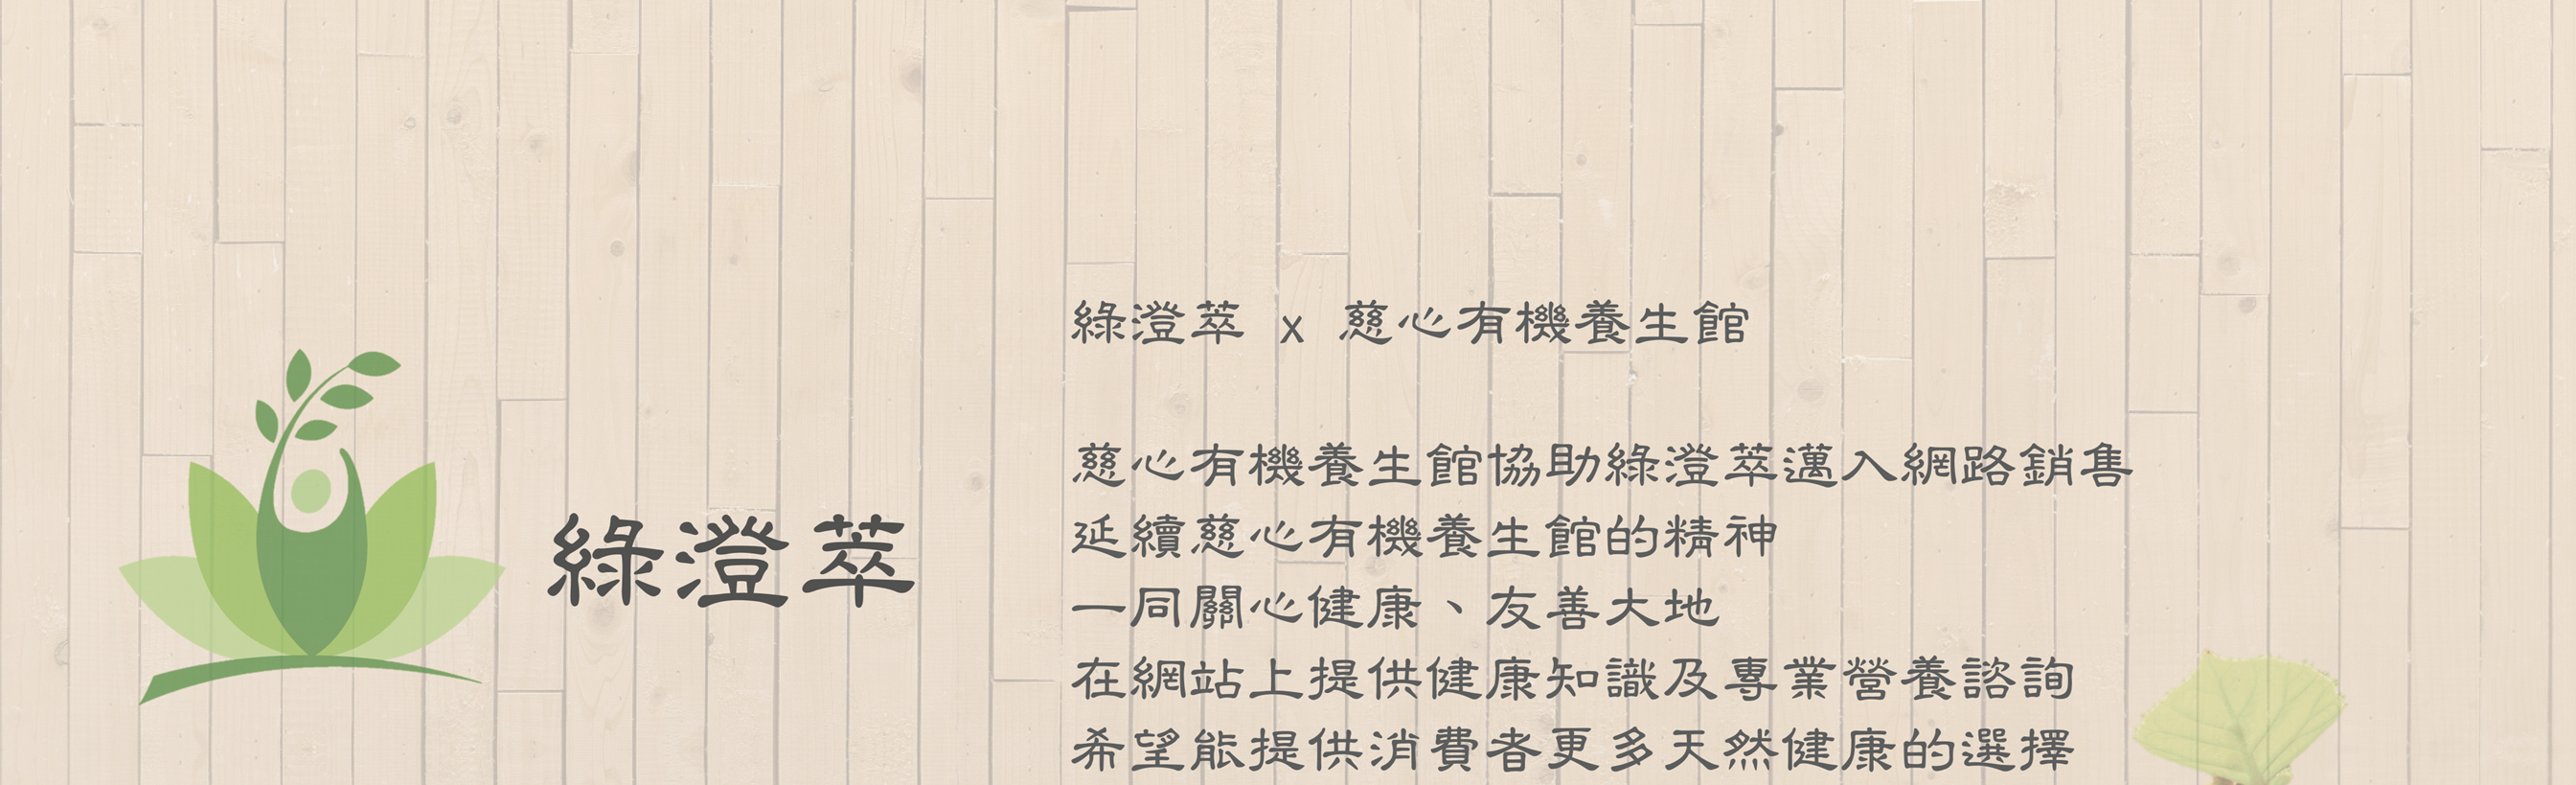 綠澄萃
綠澄萃 x 慈心有機養生館
慈心有機養生館協助綠澄萃邁入網路銷售
延續慈心有機養生館的精神
一同關心健康、友善大地
在網站上提供健康知識及專業營養諮詢
希望能提供消費者更多天然健康的選擇